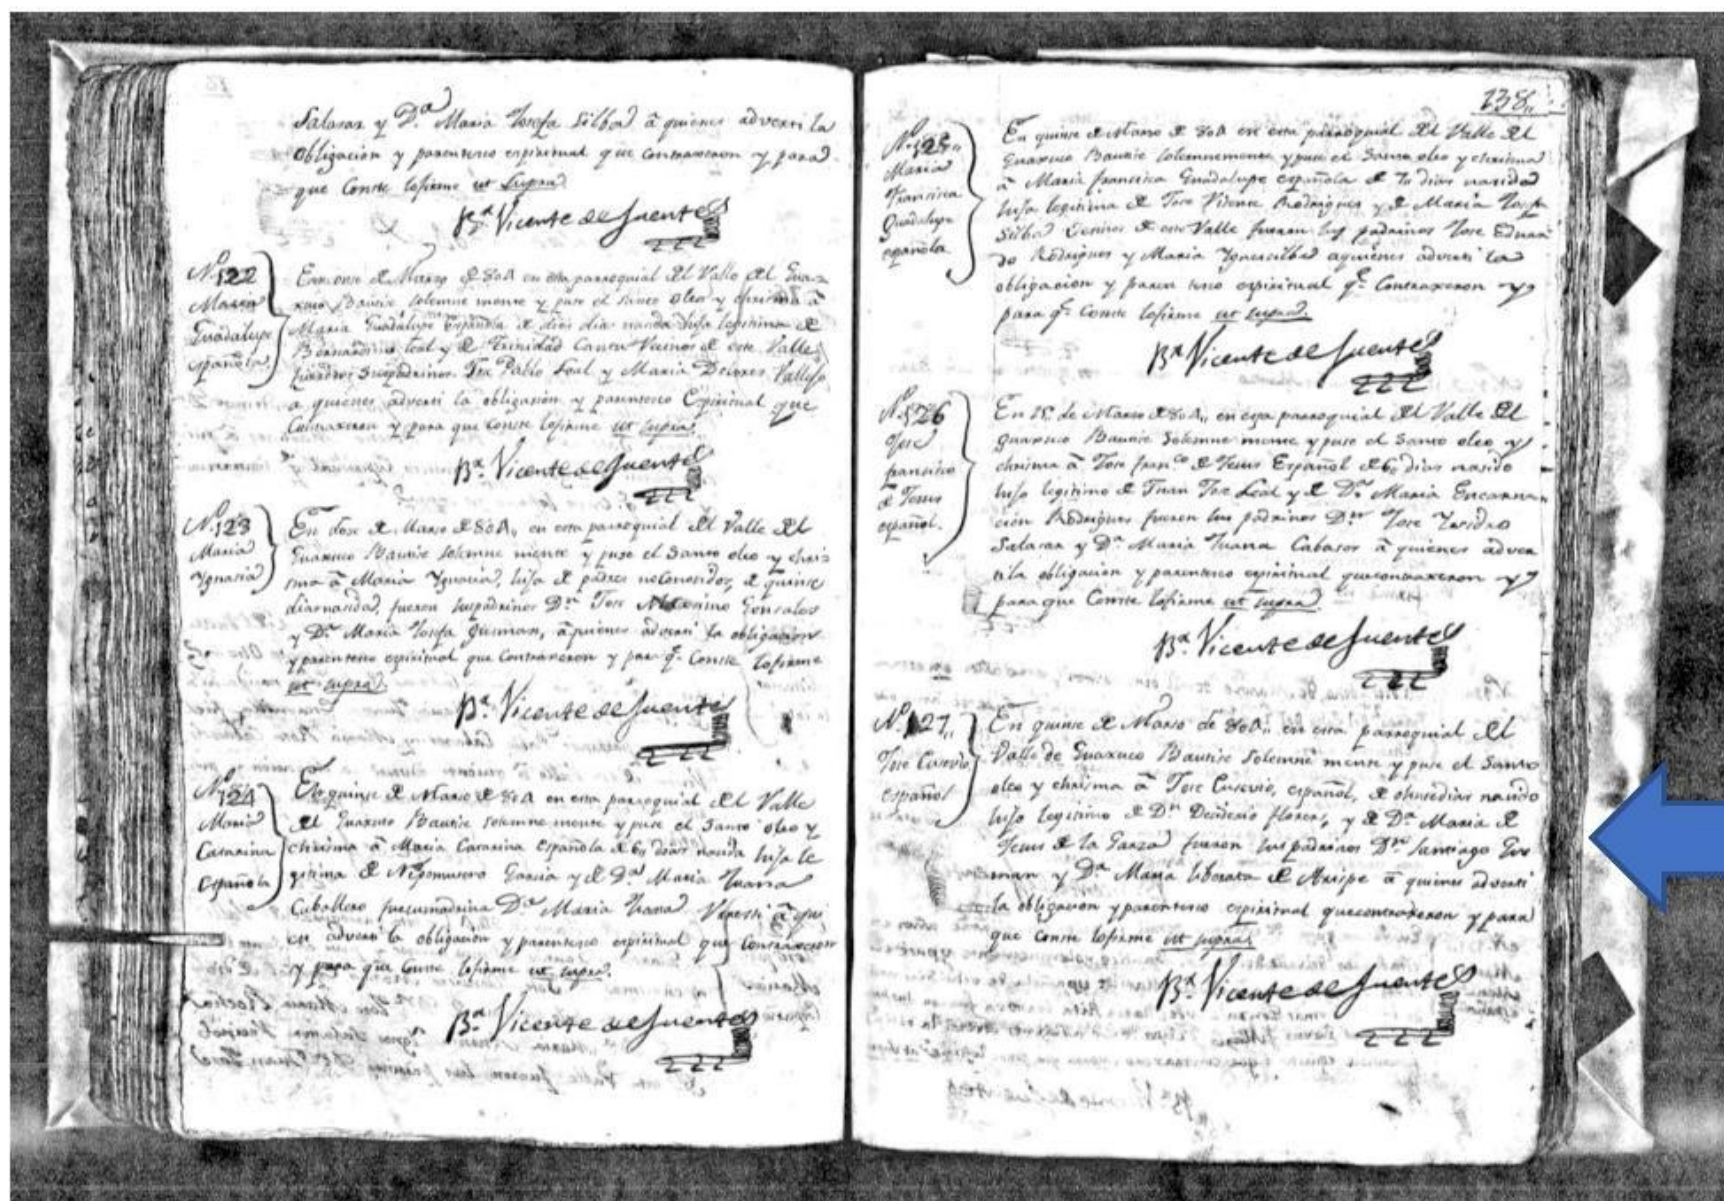 Salasar y D.ª Maria Josefa Silba â quienes adverti la
obligacion y parentesco espiritual que contraxeron y para
que Conste lo firme ut Supra
B.r Vicente de Fuentes
N.122
Maria
Guadalupe
española
En onse de Marzo de 804 en esta parroquial del Valle del Gua-
xuco Bautise solemne mente y puse el santo oleo y chrisma â
Maria Guadalupe española de dies dia nasida hija legitima de
Bernardino Leal y de Trinidad Cantu Vecinos de este Valle
Pablo Leal y Maria Dolores Vallejo
a quienes adverti la obligasion y parentesco Espiritual que
Contraxeron y para que conste lo firme ut supra
B.r Vicente de Fuentes
N.123
Maria
Ygnacia
En dose de Marso de 804,, en esta parroquial del Valle del
Guaxuco Bautise solemne mente y puse el Santo oleo y chris-
ma â Maria Ygnacia, hija de padres no Conosidos, de quinse
dias nasida, fueron sus padrinos D.n Jose Maximo Gonsales
y D.ª Maria Josefa Gusman, â quienes adverti la obligasion
y parentesco espiritual que Contraxeron y para q.e Conste lo firme
ut supra
B.r Vicente de Fuentes
N.124
Maria
Catarina
Española
En quinse de Marso de 804 en esta parroquial del Valle
del Guaxuco Bautise solemne mente y puse el Santo oleo y
chrisma â Maria Catarina Española de 6,, dias nasida hija le
gitima de Nepomuseno Garcia y de D.ª Maria Juana
Caballero fue su madrina D.ª Maria Juana â qui
en adverti la obligasion y parentesco espiritual que Contraxeron
y para que Conste lo firme ut supra.
B.r Vicente de Fuentes
138,,
N.125,,
Maria
Francisca
Guadalupe
española
En quinse de Marso de 804 en esta parroquial del Valle del
Guaxuco Bautise solemnemente y puse el Santo oleo y chrisma
â Maria francisca Guadalupe española de dias nasida
hija legitima de Jose Visente Rodrigues y de Maria Josefa
Silba Vecinos de este Valle fueron sus padrinos Jose Edua
do Rodrigues y Maria aquienes adverti la
obligacion y paren tesco espiritual q.e Contraxeron y
para q.e Conste lo firme ut supra.
B.r Vicente de Fuentes
N.126
Jose
francisco
de Jesus
español.
En 15 de Marso de 804,, en esta parroquial del Valle del
Guaxuco Bautise Solemne mente y puse el Santo oleo y
chrisma â Jose fran.co de Jesus Español de 6,, dias nasido
hijo legitimo de Juan Jose Leal y de D.ª Maria Encarna-
cion Rodrigues fueron sus padrinos D.n Jose Ysidro
Salasar y D.ª Maria Juana Cabasos â quienes adver
ti la obligasion y parentesco espiritual que contraxeron y
para que Conste lo firme ut supra
B.r Vicente de Fuentes
N.127,,
Jose Cusevio
español
En quinse de Marso de 804,, en esta parroquial del
Valle de Guaxuco Bautise Solemne mente y puse el Santo
oleo y chrisma â Jose Cusevio, español, de dias nasido
hijo legitimo de D.n Deciderio flores, y de D.ª Maria de
Jesus de la Garza fueron sus padrinos D.n Santiago Gus
man y D.ª Maria liberata de Arispe â quienes adverti
la obligasion y parentesco espiritual que contraxeron y para
que Conste lo firme ut supra
B.r Vicente de Fuentes